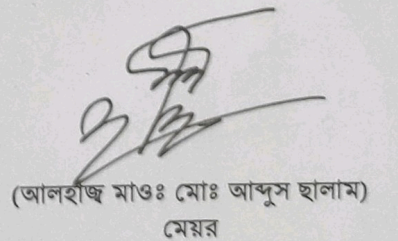 (আলহাজ্ব মাওঃ মোঃ আব্দুস ছালাম)
মেয়র